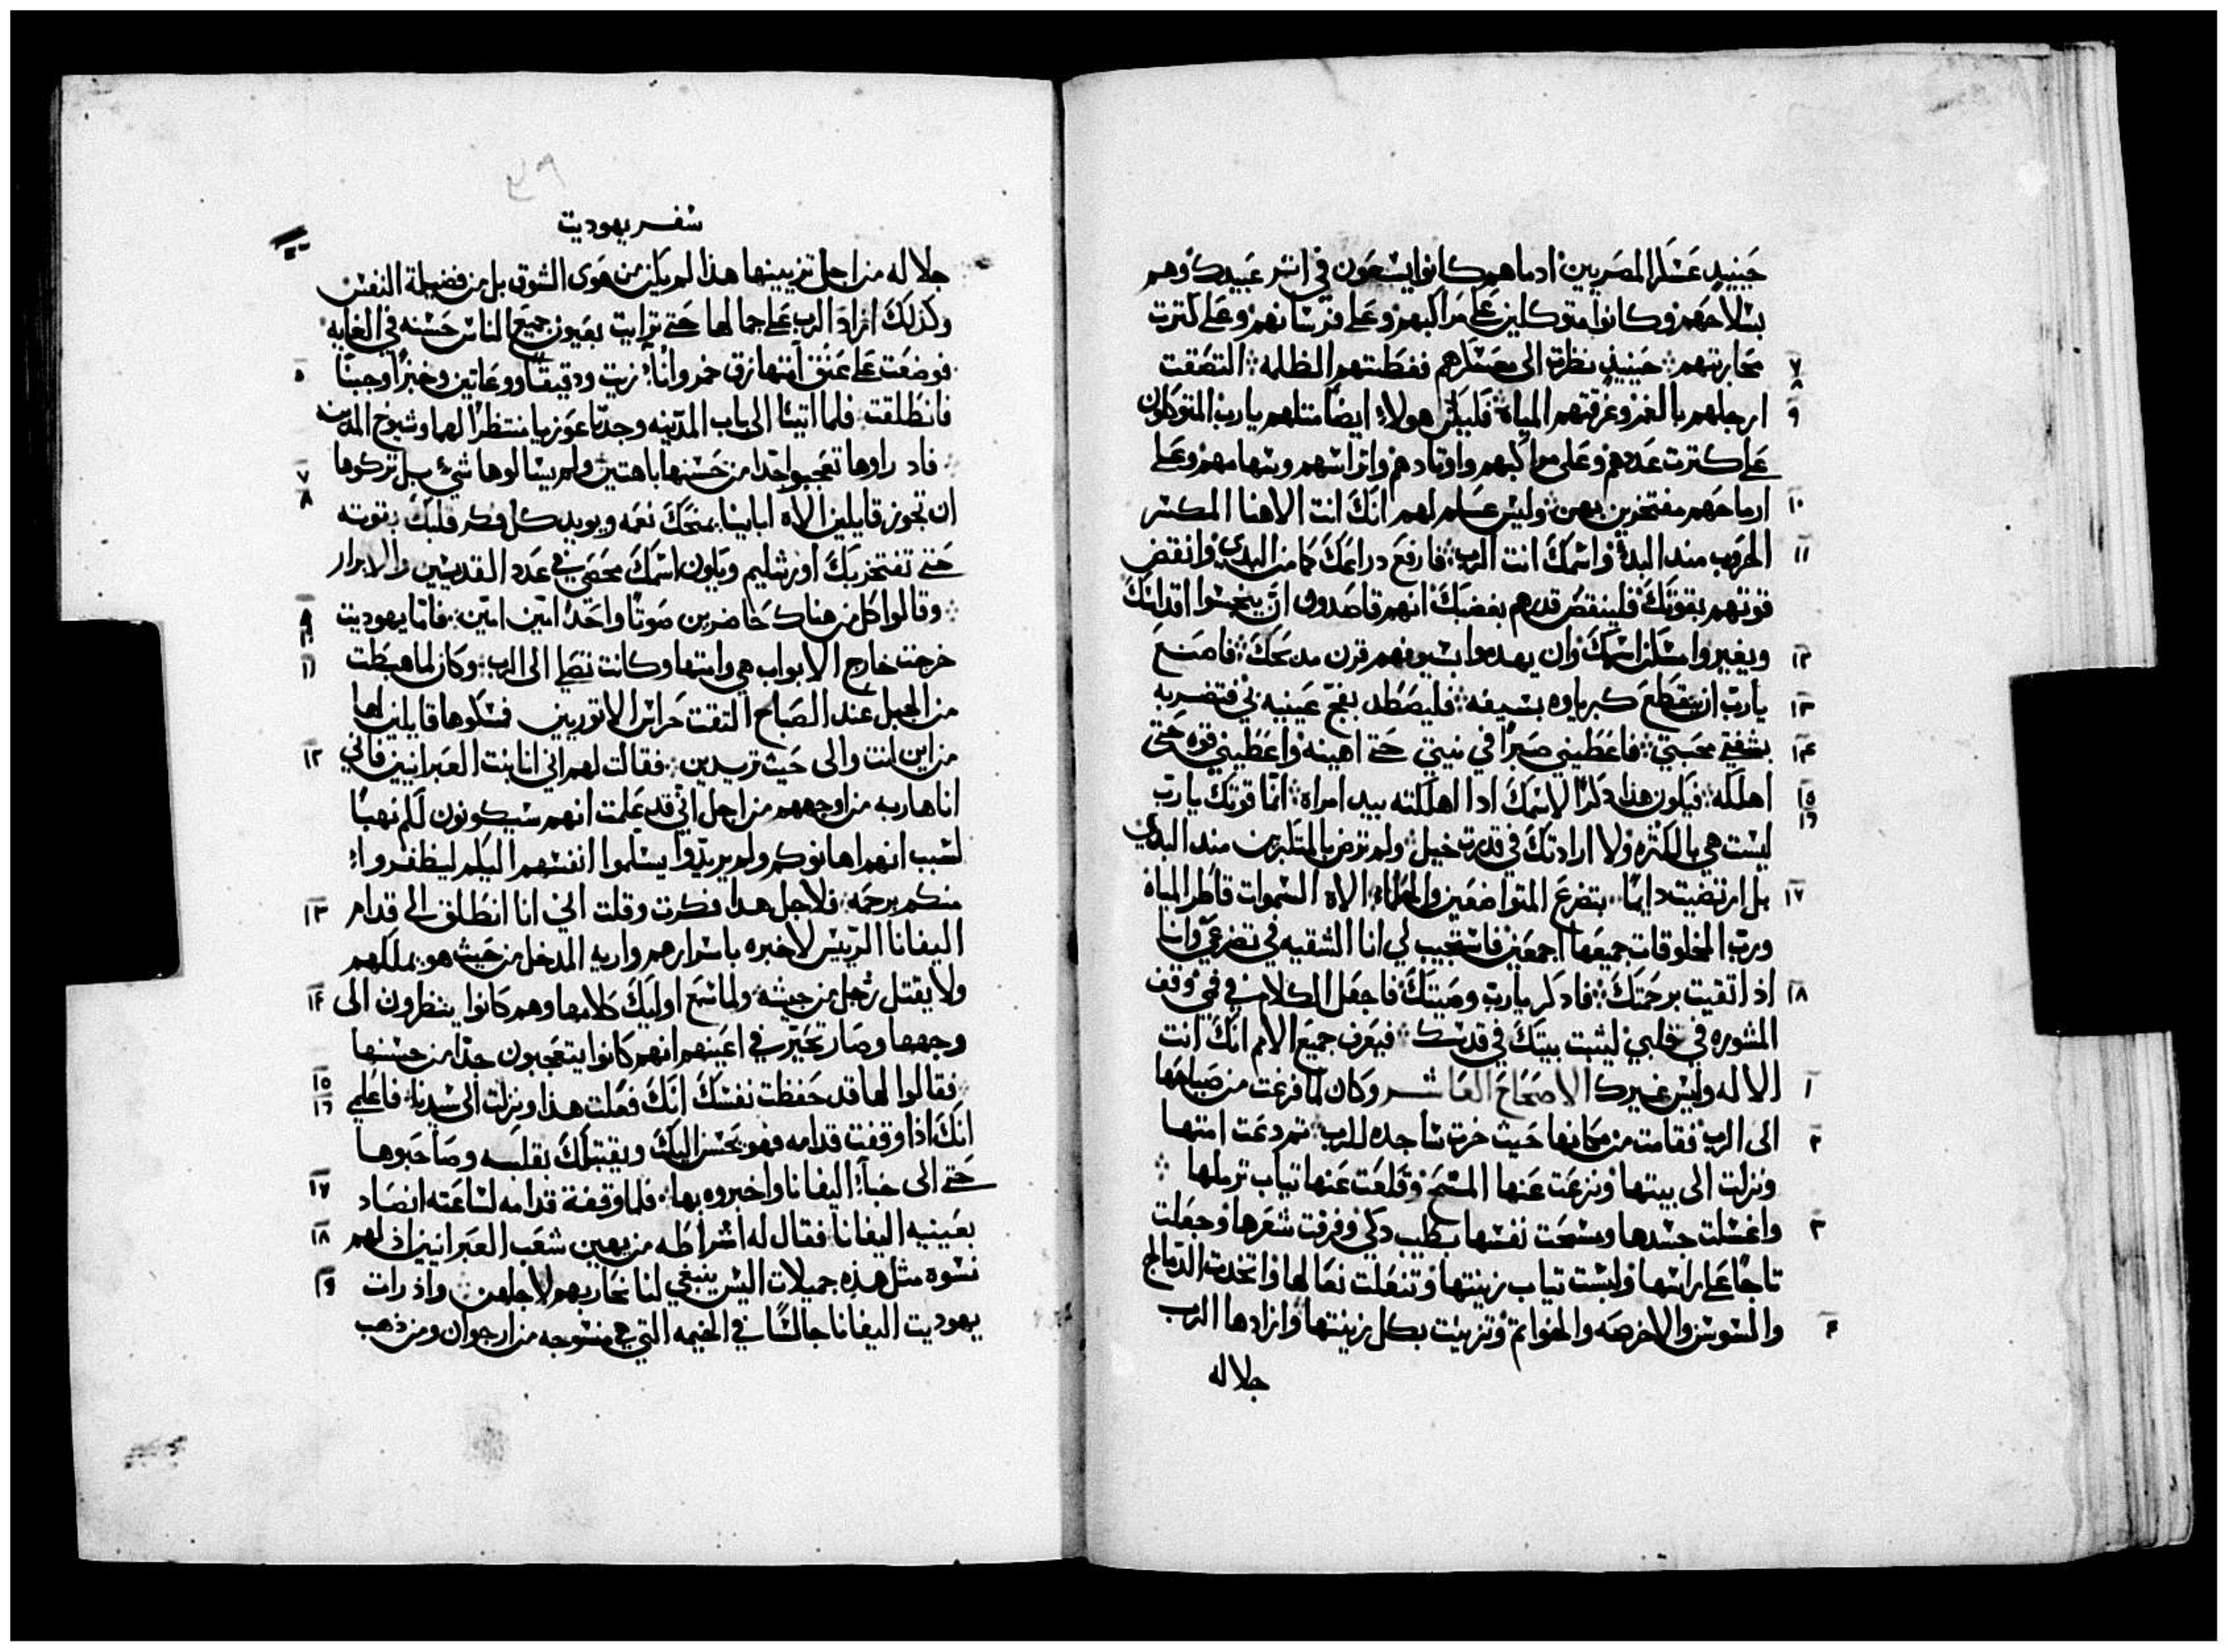 حينيذٍ عسكر المصريين ادما هم كانوا يسعون في اتر عبيدك وهم
بسلاحهم وكانوا متوكلين على مراكبهم وعلى فرسانهم وعلى كترت
٧ محاربيهم حينيذٍ نظرت الى معسكرهم فغطتهم الظلمه التصقت
٨
٩ ارجلهم بالغمر وغرقتهم المياه فليكن هولاء ايضاً متلهم يا رب المتوكلون
على كترت عددهم وعلى مراكبهم واوتادهم واتراسهم وسهامهم وعلى
١٠ ارماحهم مفتخرين بهن وليس علم لهم انك انت الاهنا المكسر
١١ الحروب مند البدء واسمك انت الرب فارفع دراعك كما من البدي وانقض
قوتهم بقوتك فلينقص قدرهم بغضبك انهم قاصدون ان ينجسوا اقداسك
١٢ ويغيروا مسكن اسمك وان يهدموا بسيوفهم قرن مدبحك فاصنع
١٣ يا رب ان يقطع كبرياوه بسيفه فليصطد بفخ عينيه في فتضربه
١٤ بشفتي محبتي فاعطيني صبراً في نيتي حتى اهينه واعطيني قوه حتى
١٥ اهلكه فيكون هدا دكراً لاسمك ادا اهلكته بيد امراه انما قوتك يا رب
١٦ ليست هي بالكثره ولا ارادتك في قدرت خيل ولم ترض بالمتكبرين مند البدي
١٧ بل ارتضيت دايماً بتضرع المتواضعين والحلماء الاه السموات فاطر المياه
ورب المخلوقات جميعها اجمعين فاستجيب لي انا الشقيه في تضرعي وانا
١٨ اذ اتقيت برحمتك فادكر يا رب وصيتك فاجعل الكلام في فمي وقف
المشوره في قلبي ليثبت بيتك في قدسك فيعرف جميع الامم انك انت
١ الاله وليس غيرك الاصحاح العاشر وكان لما فرغت من صياحها
٢ الى الرب فقامت من مكانها حيث خرت ساجده للرب تم دعت امتها
ونزلت الى بيتها ونزعت عنها المسح وقلعت عنها تياب ترملها
٣ واغسلت جسدها ومسحت نفسها بطيب دكي وفرقت شعرها وجعلت
تاجاً على راسها ولبست تياب زينتها وتنعلت نعالها واتخدت الدمالج
٤ والسوسن والاخرصه والخواتم وتزينت بكل زينتها وازادها الرب
جلاله
سفر يهوديت
جلاله من اجل تزيينها هذا لم يكن من هوى الشوق بل من فضيلة النفس
وكذلك ازاد الرب على جمالها حتى ترايت بعيون جميع الناس حسنه في الغايه
٥ فوضعت على عنق امتها زق خمر واناء زيت ودقيقاً ووعاتين وخبزاً وجبناً
فانطلقت فلما اتيتا الى باب المدينه وجدتا عوزيا منتظراً لهما وشيوخ المدينه
٧ فاد راوها تعجبوا جدا من حسنها باهتين ولم يسالوها شيء بل تركوها
٨ ان تجوز قايلين الاه اباينا يمنحك نعمه ويويد كل فكر قلبك بقوته
حتى تفتخر بك اورشليم ويكون اسمك محصى في عدد القديسين والابرار
٩ وقالوا كل من هناك حاضرين صوتاً واحداً امين امين فاما يهوديت
١٠
١١ خرجت خارج الابواب هي وامتها وكانت تصلي الى الرب وكان لما هبطت
من الجبل عند الصباح التقت حراس الاتوريين فمسكوها قايلين لها
١٢ من اين انت والى حيث تريدين فقالت لهم اني انا بنت العبرانيين فاني
انا هاربه من اوجههم من اجل اني قد علمت انهم سيكونون لكم نهباً
لسبب انهم اهانوكم ولم يريدوا يسلموا انفسهم اليكم ليظفروا
١٣ منكم برحمه فلاجل هدا فكرت وقلت اني انا انطلق الى قدام
اليفانا الرييس لاخبره باسرارهم واريه المدخل من حيث هو يملكهم
١٤ ولا يقتل رجل من جيشه ولما سمع اوليك كلامها وهم كانوا ينظرون الى
وجهها وصار تحير في اعينهم انهم كانوا يتعجبون جدا من حسنها
١٥ فقالوا لها قد حفظت نفسك انك فعلت هذا ونزلت الى سيدنا فاعلمي
١٦
انك اذا وقفت قدامه فهو يحسن اليك ويقتبلك بقلبه وصاحبوها
١٧ حتى الى خباء اليفانا واخبروه بها فلما وقفة قدامه لساعته انصاد
١٨ بعينيه اليفانا فقال له اشراطه من يهين شعب العبرانيين اذ لهم
١٩ نسوه مثل هذه جميلات اليس ينبغي لنا نحاربهم لاجلهن واذ رات
يهوديت اليفانا جالساً في الخيمه التي هي منسوجه من ارجوان ومن ذهب